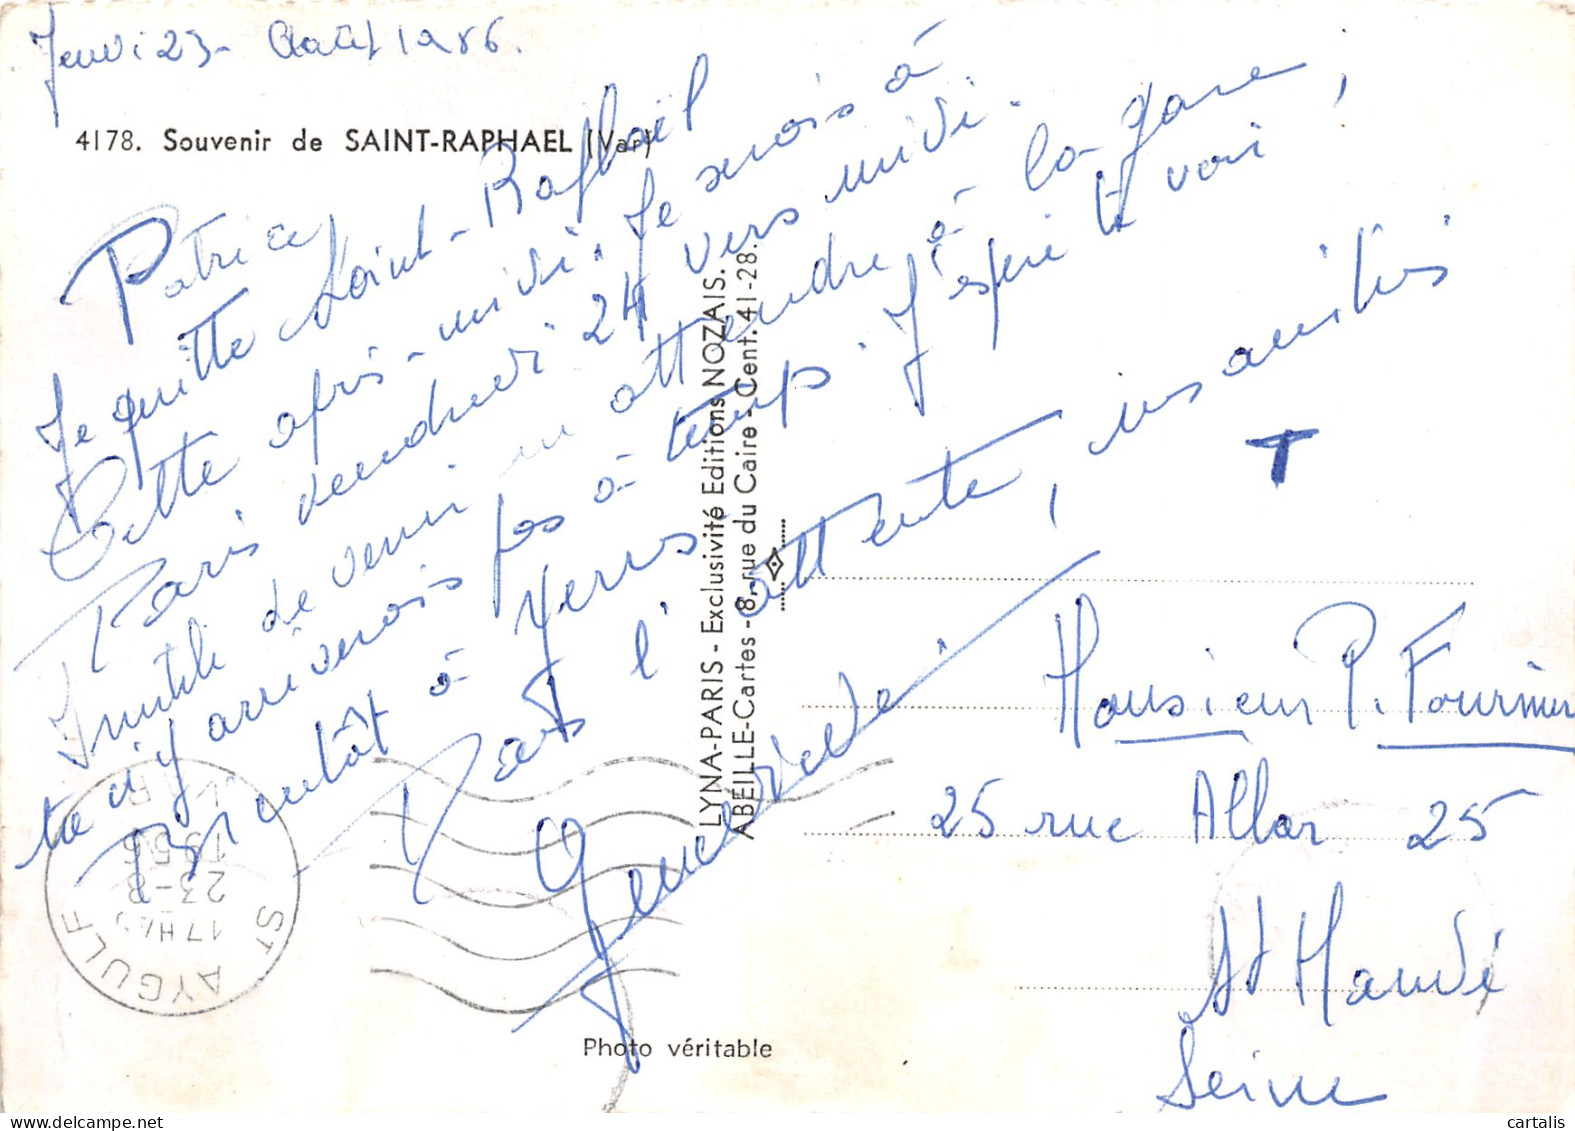 Jeudi 23 - Août 1956.
4178. Souvenir de SAINT-RAPHAEL (Var)
Patrice,
Je quitte Saint-Raphaël
Cette après-midi. Je serais à
Paris vendredi 24 vers midi.
Inutile de venir m'attendre à la gare,
tu n'y arriverais pas à temps. J'espère te voir,
Bientôt à Yerres.
Dans l'attente, mes amitiés
Geneviève
T
LYNA-PARIS - Exclusivité Editions NOZAIS.
ABEILLE-Cartes - 8, rue du Caire - Cent. 41-28.
Monsieur P. Fournier
25 rue Allar 25
St Mandé
Seine
ST AYGULF
17H
23-8
1956
VAR
Photo véritable
cartalis